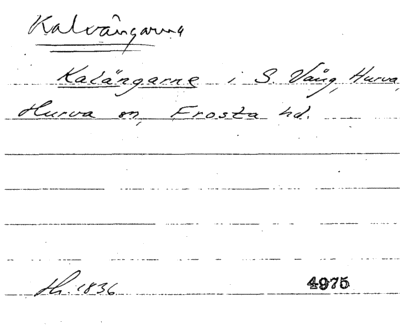 Kalvängarna
Kalängarne i S. Vång, Hurva,
Hurva sn, Frosta hd.
Hr. 1836 4975